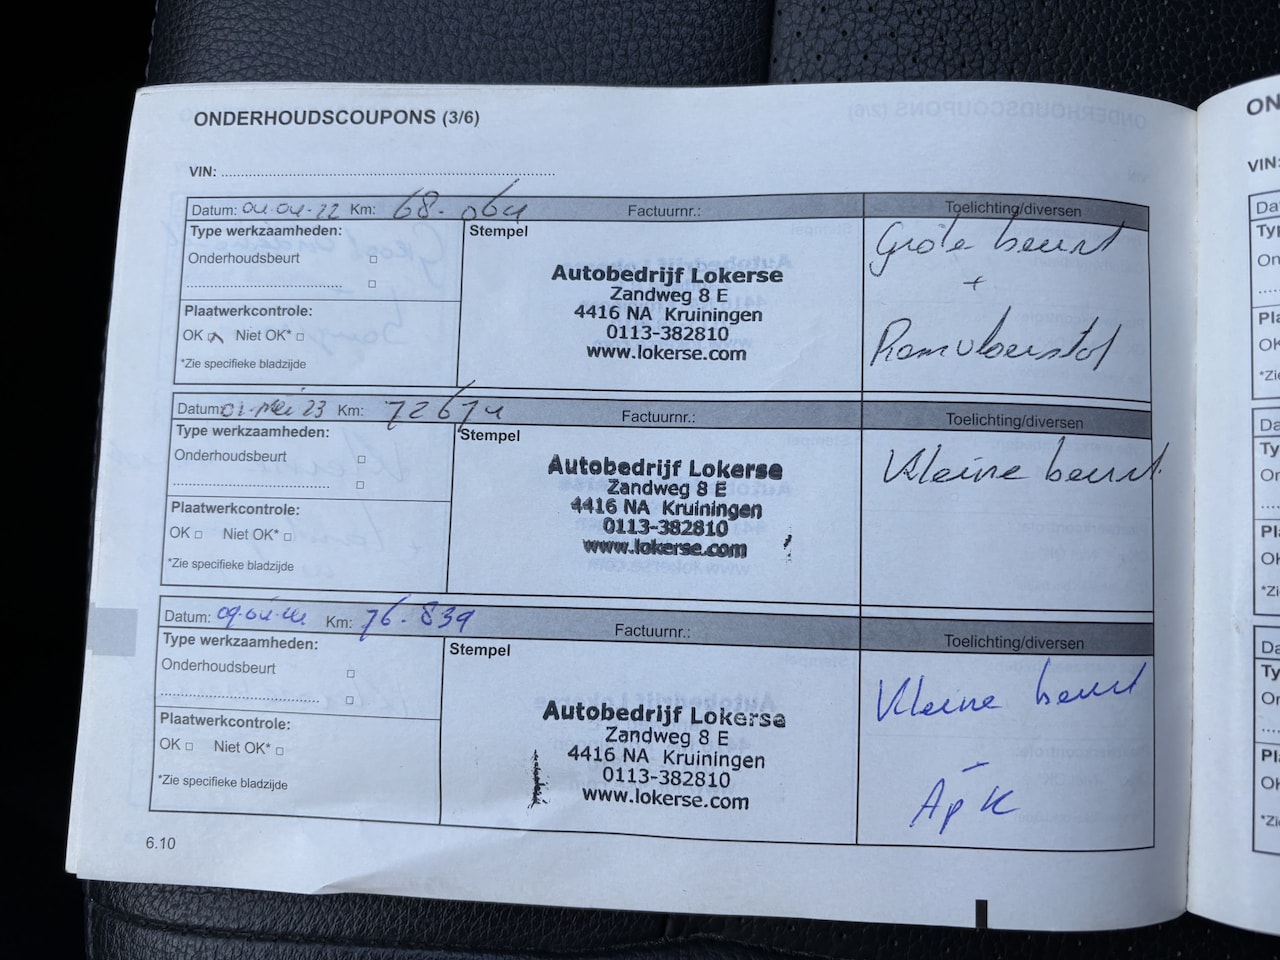 ONDERHOUDSCOUPONS (3/6)
VIN:
Datum: 04-04-22 Km: 68.064 Factuurnr.: Toelichting/diversen
Type werkzaamheden:
Onderhoudsbeurt
Plaatwerkcontrole:
OK Niet OK*
*Zie specifieke bladzijde
Stempel
Autobedrijf Lokerse
Zandweg 8 E
4416 NA Kruiningen
0113-382810
www.lokerse.com
Grote beurt
+
Remvloeistof
Datum: Mei 23 Km: 72674 Factuurnr.: Toelichting/diversen
Type werkzaamheden:
Onderhoudsbeurt
Plaatwerkcontrole:
OK Niet OK*
*Zie specifieke bladzijde
Stempel
Autobedrijf Lokerse
Zandweg 8 E
4416 NA Kruiningen
0113-382810
www.lokerse.com
Kleine beurt
Datum: Km: 76.839 Factuurnr.: Toelichting/diversen
Type werkzaamheden:
Onderhoudsbeurt
Plaatwerkcontrole:
OK Niet OK*
*Zie specifieke bladzijde
Stempel
Autobedrijf Lokerse
Zandweg 8 E
4416 NA Kruiningen
0113-382810
www.lokerse.com
Kleine beurt
ApK
6.10
VIN: